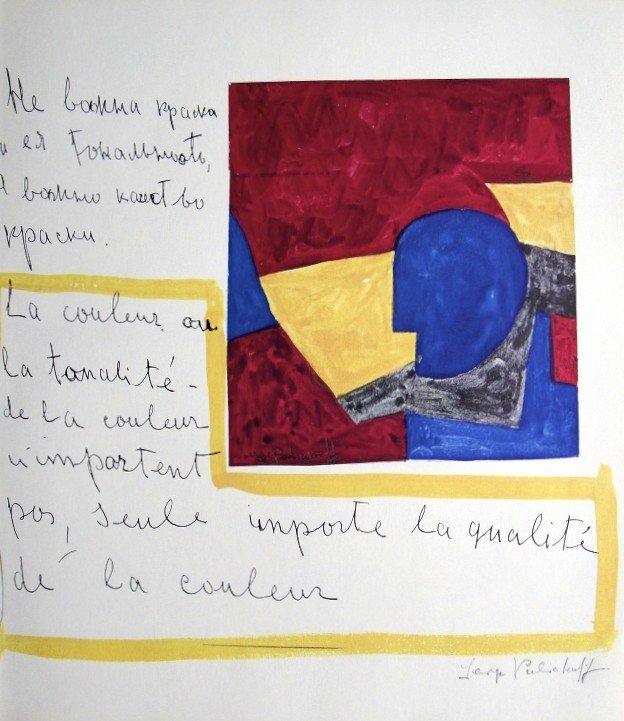 Не важна краска
и ея тональность,
а важно качество
краски.
La couleur ou
la tonalité-
de la couleur
n'importent
pas, seule importe la qualité
de la couleur
Serge Poliakoff